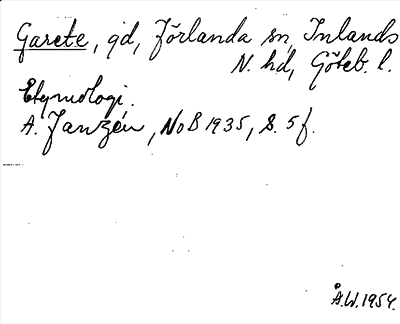 Garete, gd, Jörlanda sn, Inlands
N. hd, Göteb. l.
Etymologi.
A. Janzén, NoB 1935, S. 5 f.
Å.W. 1954.